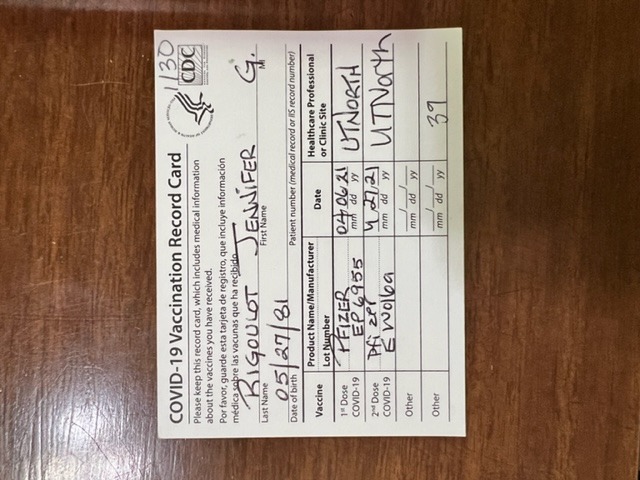 1/30
COVID-19 Vaccination Record Card
CDC
Please keep this record card, which includes medical information
about the vaccines you have received.
Por favor, guarde esta tarjeta de registro, que incluye información
médica sobre las vacunas que ha recibido.
RIGOULOT JENNIFER G.
Last Name First Name MI
05/27/81
Date of birth Patient number (medical record or IIS record number)
Vaccine Product Name/Manufacturer Date Healthcare Professional
Lot Number or Clinic Site
1st Dose PFIZER 04 06 21 UTNORTH
COVID-19 EP6955 mm dd yy
2nd Dose Pfizer 4 27 21 UTNorth
COVID-19 EW0169 mm dd yy
Other __/__/__
mm dd yy
Other __/__/__ 39
mm dd yy